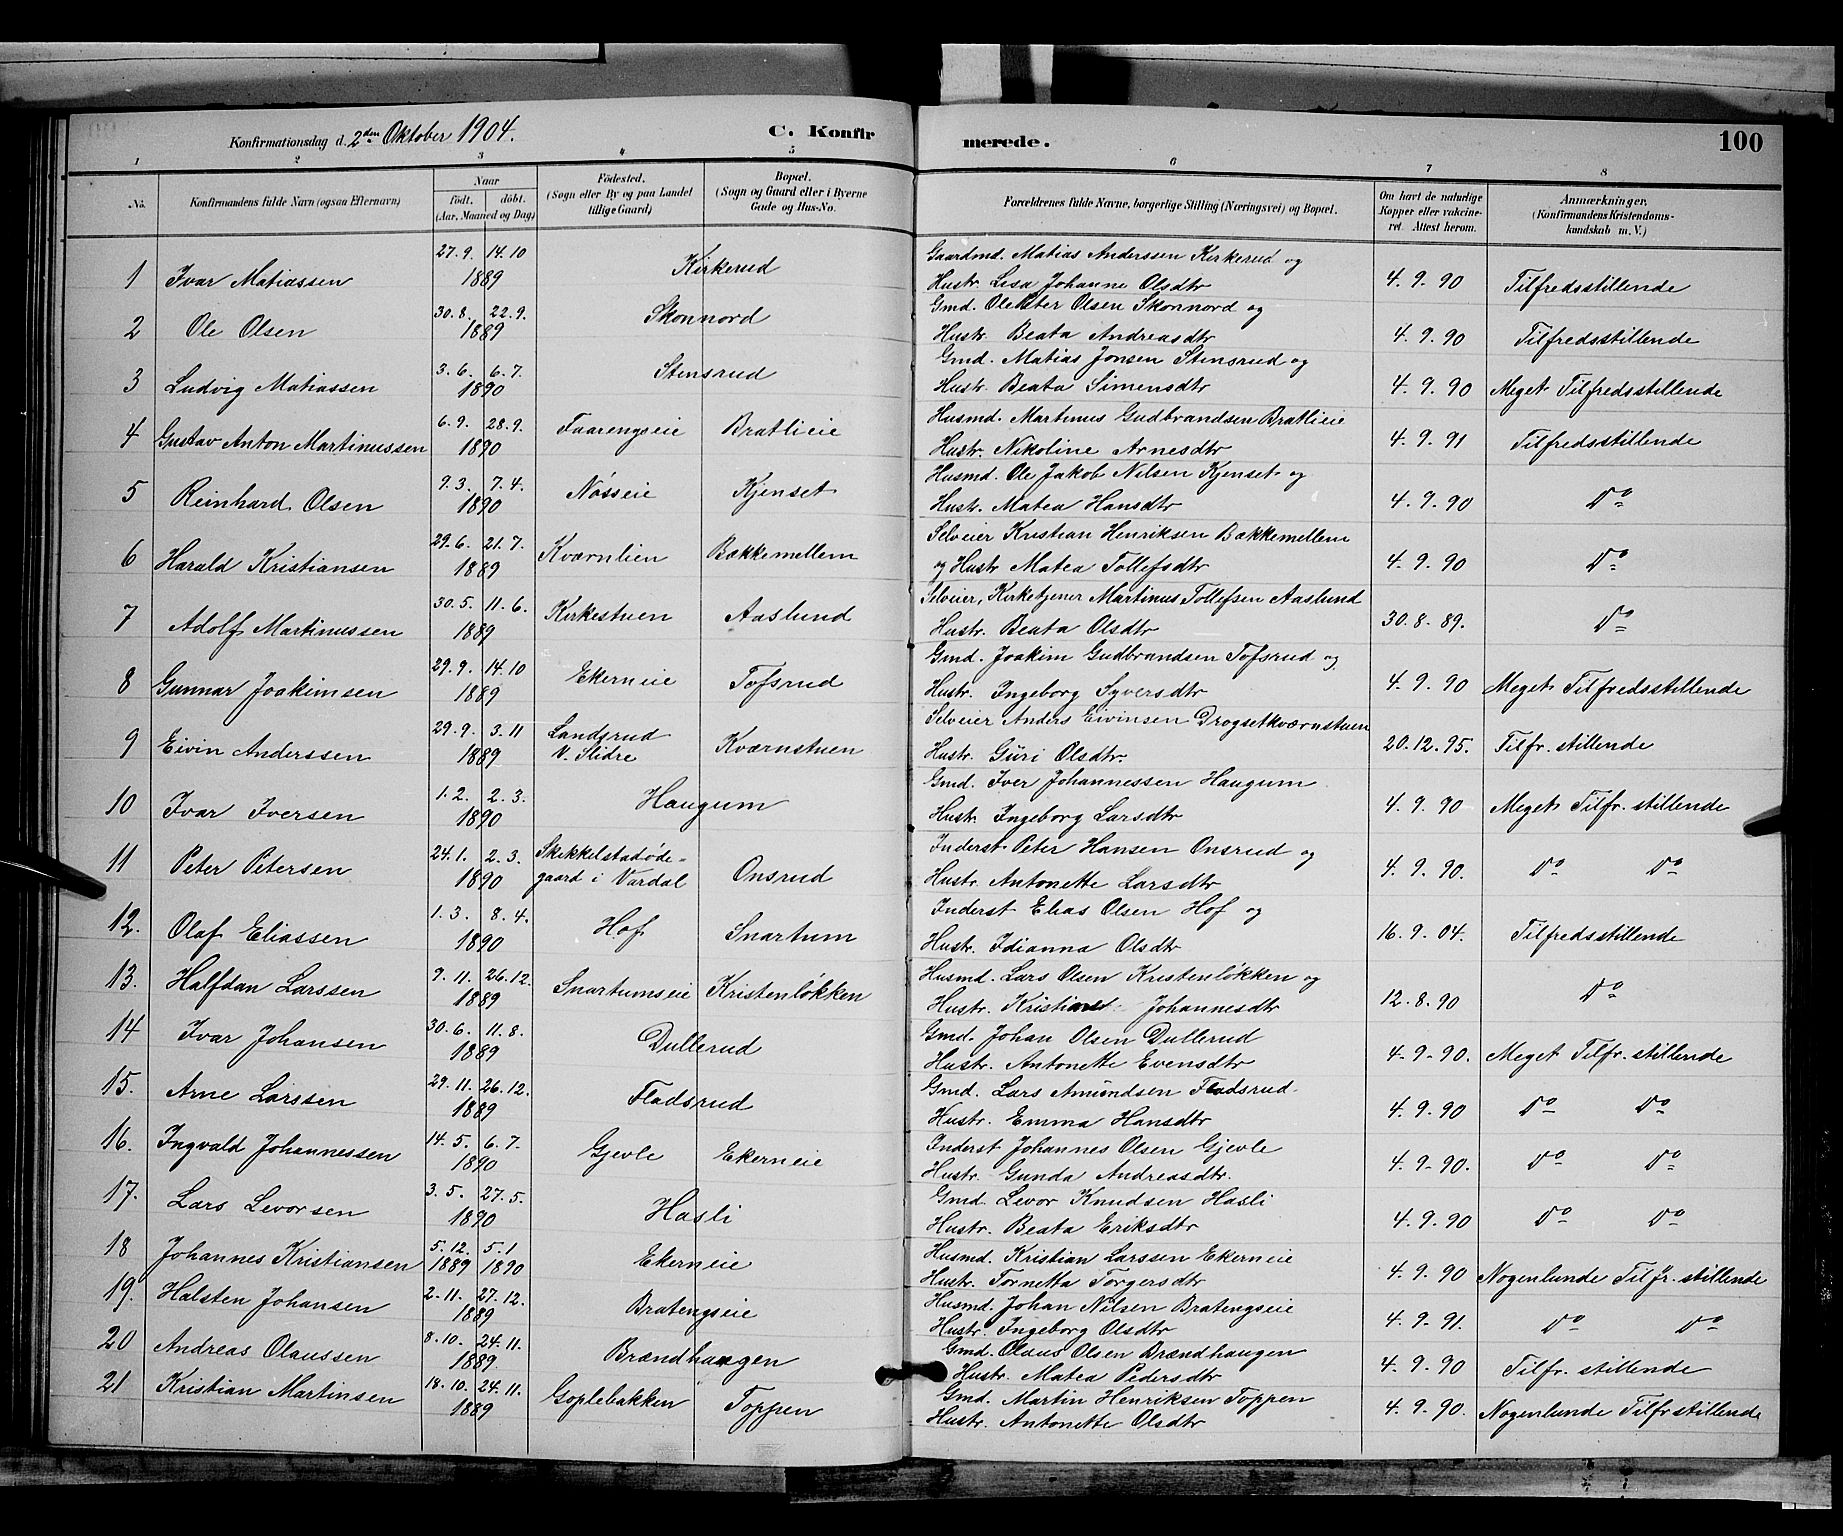 Konfirmationsdag d. 2den Oktober 1904. C. Konfirmerede. 100
1 2 3 4 5 6 7 8
No. Konfirmandens fulde Navn (ogsaa Efternavn) Naar født. døbt. (Aar, Maaned og Dag) Fødested. (Sogn eller By og paa Landet tillige Gaard) Bopæl. (Sogn og Gaard eller i Byerne Gade og Hus-No. Forældrenes fulde Navne, borgerlige Stilling (Næringsvei) og Bopæl. Om havt de naturlige Kopper eller vakcineret. Attest herom. Anmærkninger. (Konfirmandens Kristendomskundskab m. V.)
27.9. 14.10 Kirkerud Gaardmd. Matias Anderssen Kirkerud og
1 Ivar Matiassen 1889 Hustr. Lisa Johanne Olsdtr 4.9.90 Tilfredsstillende
30.8. 22.9. Skonnord Gmd. Ole Peter Olsen Skonnord og
2 Ole Olsen 1889 Hustr. Beata Andreasdtr 4.9.90 Tilfredsstillende
3.6. 6.7. Stensrud Gmd. Matias Jonsen Stensrud og
3 Ludvig Matiassen 1890 Hustr. Beata Simensdtr 4.9.90 Meget Tilfredsstillende
6.9. 28.9. Faarengseie Bratlieie Husmd. Martinus Gudbrandsen Bratlieie
4 Gustav Anton Martinussen 1890 Hustr. Nikoline Arnesdtr 4.9.91 Tilfredsstillende
9.3. 7.4. Nøsseie Kjenset Husmd. Ole Jakob Nilsen Kjenset og
5 Reinhard Olsen 1890 Hustr. Matea Hansdtr 4.9.90 Do
29.6. 21.7. Kværnlien Bækkemellem Selveier Kristian Henriksen Bækkemellem
6 Harald Kristiansen 1889 og Hustr Matea Tollefsdtr 4.9.90 Do
30.5. 11.6. Kirkestuen Aaslund Selveier, Kirketjener Martinus Tollefsen Aaslund
7 Adolf Martinussen 1889 Hustr. Beata Olsdtr 30.8.89. Do
29.9. 14.10 Ekerneie Tofsrud Gmd. Joakim Gudbrandsen Tofsrud og
8 Gunnar Joakimsen 1889 Hustr. Ingeborg Syversdtr 4.9.90 Meget Tilfredsstillende
29.9. 3.11 Landsrud V. Slidre Kværnstuen Selveier Anders Eivinsen Drogsetkværnstuen
9 Eivin Anderssen 1889 Hustr. Guri Olsdtr. 20.12.95. Tilfr. stillende
1.2. 2.3. Haugum Gmd. Iver Johannessen Haugum
10 Ivar Iversen 1890 Hustr. Ingeborg Larsdtr 4.9.90 Meget Tilfr. stillende
24.1. 2.3. Skikkelstadødegaard i Vardal Onsrud Inderst Peter Hansen Onsrud og
11 Peter Petersen 1890 Hustr. Antonette Larsdtr 4.9.90. Do Do
1.3. 8.4. Hof Snartum Inderst Elias Olsen Hof og
12. Olaf Eliassen 1890 Hustr. Idianna Olsdtr 16.9.04. Tilfredsstillende
9.11. 26.12. Snartumseie Kristenløkken Husmd. Lars Olsen Kristenløkken og
13. Halfdan Larssen 1889 Hustr. Johannesdtr 12.8.90 Do
30.6. 11.8. Dullerud Gmd. Johan Olsen Dullerud
14 Ivar Johansen 1889 Hustr. Antonette Evensdtr 4.9.90. Meget Tilfr. stillende
29.11. 26.12. Fladsrud Gmd. Lars Amundsen Fladsrud
15. Arne Larssen 1889 Hustr. Emma Hansdtr 4.9.90 Do Do
14.5. 6.7. Gjevle Ekerneie Inderst Johannes Olsen Gjevle
16. Ingvald Johannessen 1890 Hustr. Gunda Andreasdtr. 4.9.90. Do Do
3.5. 27.5. Hasli Gmd. Levor Knudsen Hasli
17. Lars Levorsen 1890 Hustr. Beata Eriksdtr 4.9.90 Do Do
5.12. 5.1 Ekerneie Husmd. Kristian Larssen Ekerneie
18 Johannes Kristiansen 1889 1890 Hustr. Tornetta Torgersdtr 4.9.90 Nogenlunde Tilfr. stillende
2.11. 27.12. Bratengseie Husmd. Johan Nilsen Bratengseie
19. Halsten Johansen 1889 Hustr. Ingeborg Olsdtr 4.9.91. Do Do
8.10. 24.11. Brændhaugen Gmd. Olaus Olsen Brændhaugen
20 Andreas Olaussen 1889 Hustr. Matea Pedersdtr 4.9.90 Tilfr. stillende
18.10. 24.11. Goplebakken Toppen Gmd. Martin Henriksen Toppen
21 Kristian Martinsen 1889 Hustr. Antonette Olsdtr 4.9.90. Nogenlunde Tilfr stillende